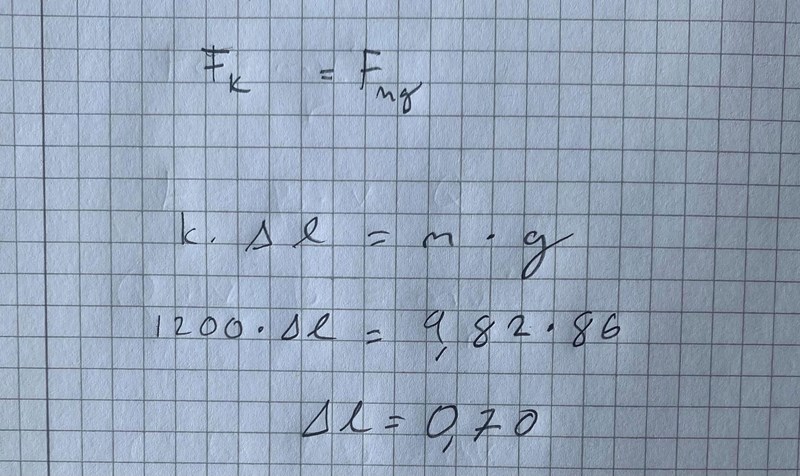 F_k = F_mg
k · Δl = m · g
1200 · Δl = 9,82 · 86
Δl = 0,70